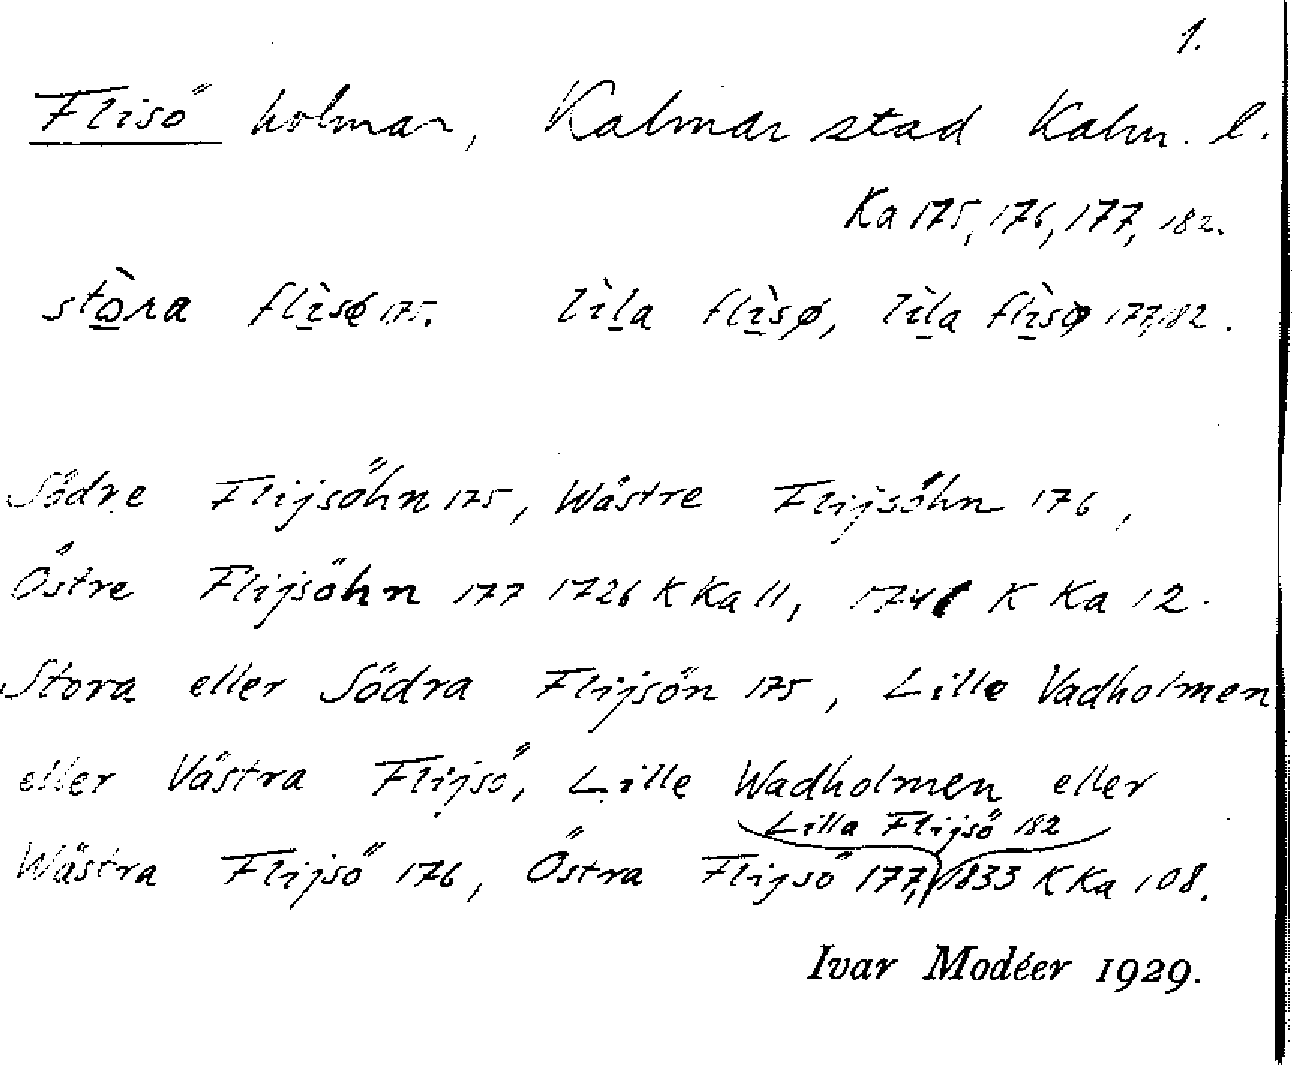 1.
Flisö holmar, Kalmar stad Kalm. l.
Ka 175, 176, 177, 182.
stòra flìsø 175. lìla flìsø, lìla flìsø 177, 182.
Södre Flijsöhn 175, Wästre Flijsöhn 176,
Östre Flijsöhn 177 1726 K Ka 11, 1741 K Ka 12.
Stora eller Södra Flijsön 175, Lille Vadholmen
eller Västra Flijsö, Lille Wadholmen eller
Lilla Flijsö 182
Wästra Flijsö 176, Östra Flijsö 177, 1833 K Ka 108.
Ivar Modéer 1929.